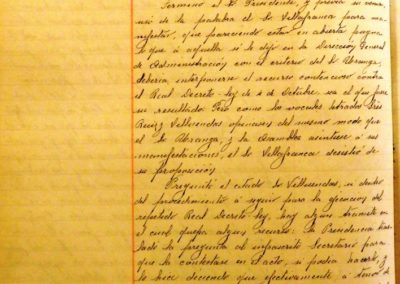 Terminó el Sr Presidente, y previa su venia
usó de la palabra el Sr Villafranca para ma-
nifestar, que pareciendo estar en abierta pugna
lo que á aquella se le dijo en la Dirección General
de Administración con el criterio del Sr Uranga,
debería interponerse el recurso contencioso contra
el Real Decreto-ley de 4 de Octubre, sea el que fuere
su resultado. Pero como los vocales letrados Srs
Ruiz y Vellosendas opinasen del mismo modo que
el Sr Uranga, y la Asamblea asintiese á sus
manifestaciones, el Sr Villafranca desistió de
su proposición.
Preguntó el citado Sr Vellosendas, si dentro
del procedimiento á seguir para la ejecución del
repetido Real Decreto-ley, hay algun trámite en
el cual quepa algun recurso: la Presidencia tras-
ladó la pregunta al infrascrito Secretario para
que la contestase en el acto, si podía hacerlo, y
lo hice diciendo que efectivamente á tenor de